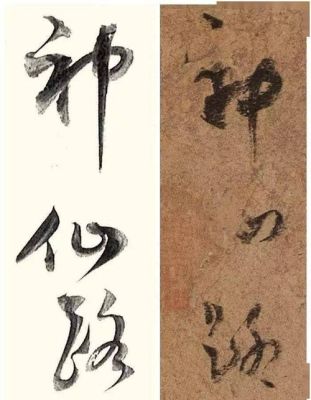 神仙路
神仙路